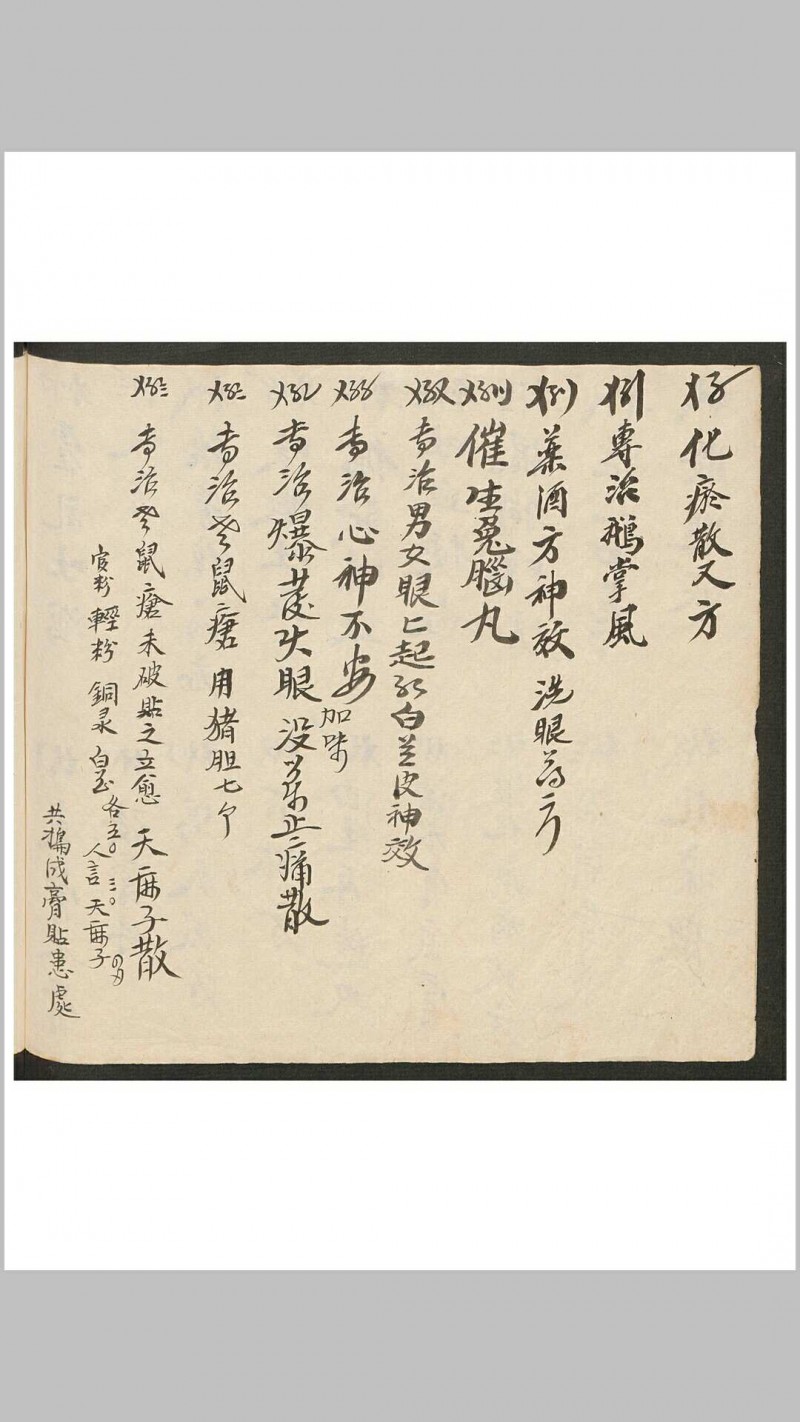 化瘀散又方
專治鵝掌風
藥酒方神效 洗眼
催生兔腦丸
專治男女眼上起 白 皮神效
專治心神不安 加味
專治爆發火眼 沒藥止痛散
專治老鼠瘡 用猪胆七个
專治老鼠瘡未破貼之立愈 天麻子散
官粉 輕粉 銅彔 白 各五 人言 三 天麻子
共搗成膏貼患處